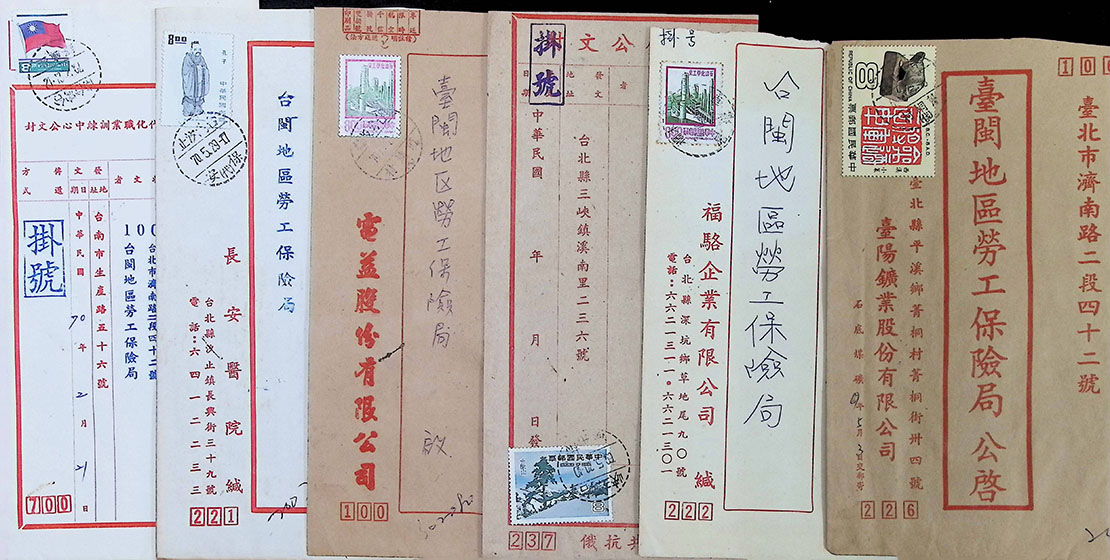 化職業訓練中心公文封
掛號
中華民國 70 年 2 月 21 日
台南市生產路五十六號
100
台北市濟南路二段四十二號
台閩地區勞工保險局
700
8.00
孔子
中華民國郵票
70.5.29.17
台閩地區勞工保險局
長安醫院 緘
台北縣汐止鎮長興街三十九號
電話:六四一二二三三
221
臺閩地区勞工保險局 啟
電益股份有限公司
100
掛號
公文封
發文
中華民國 年 月 日發
台北縣三峽鎮溪南里二三六號
中華民國郵票
8
237
抗俄
掛号
台閩地區勞工保險局
福駱企業有限公司 緘
台北縣深坑鄉草地尾九〇號
電話:六六二一三一一·六六二一三〇一
222
18
REPUBLIC OF CHINA
中華民國郵票
100
臺北市濟南路二段四十二號
臺閩地區勞工保險局 公啓
臺北縣平溪鄉菁桐村菁桐街卅四號
臺陽鑛業股份有限公司
石底煤礦
226